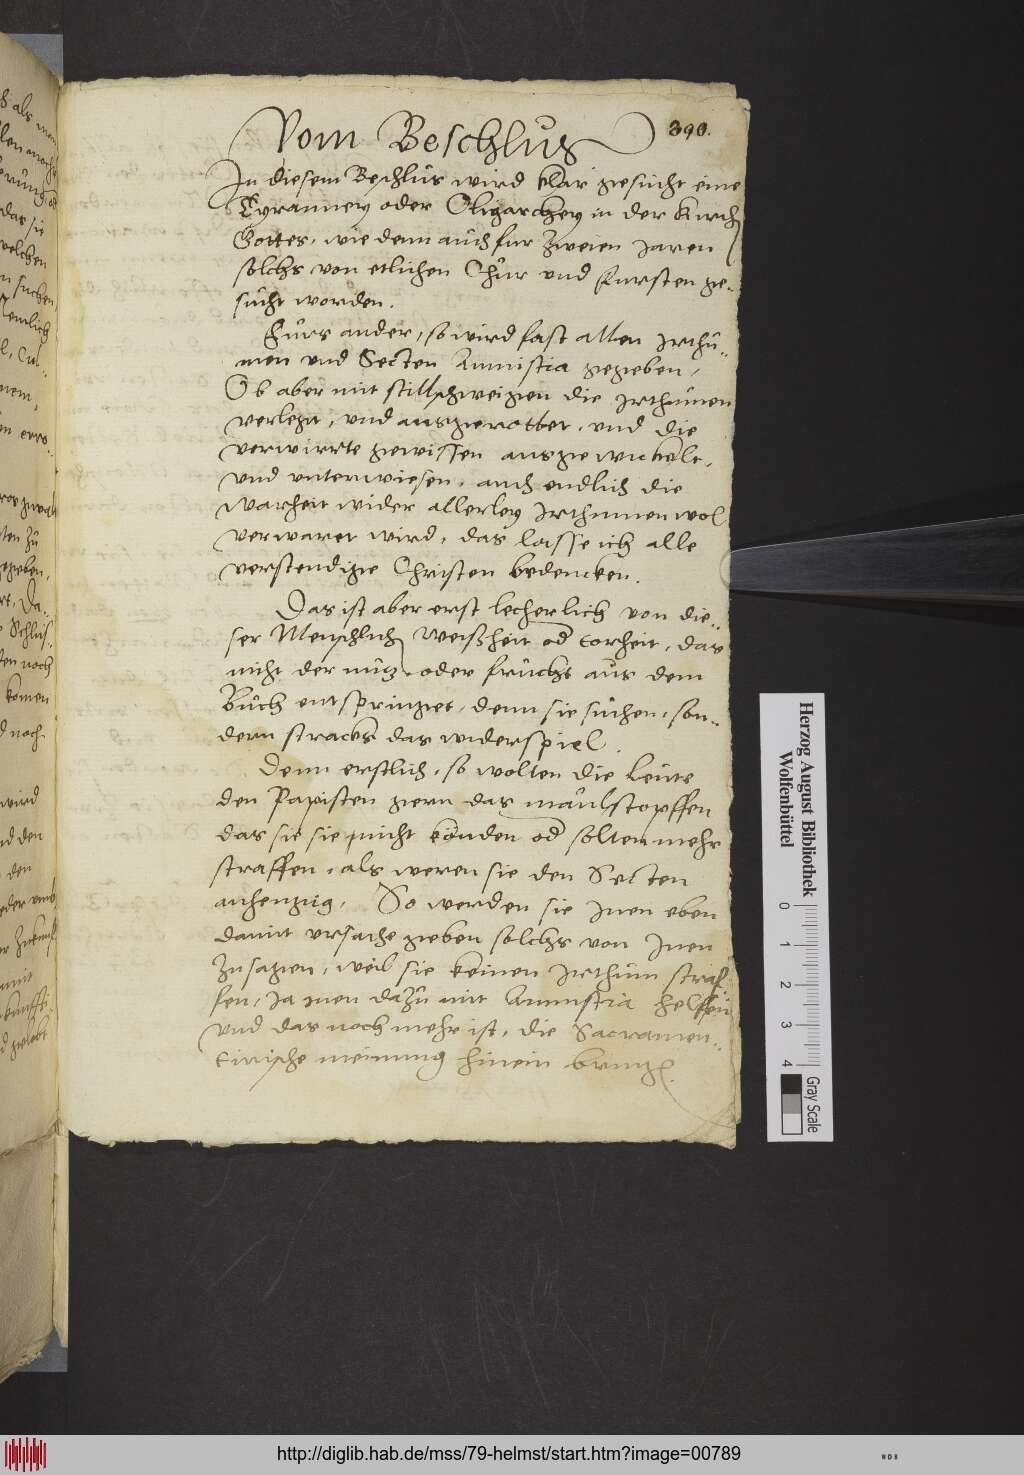 390.
Vom Beschlus
In diesem Beschlus wird klar gesucht eine
Tyranney oder Oligarchey in der Kirch
Gottes, wie denn auch fur zweien jaren
solchs von etlichen Chur und Fursten ge-
sucht worden.
Furs ander, so wird fast allen irthu-
men und Secten Amnistia gegeben,
Ob aber mit stillschweigen die irthumen
verlegt, und ausgerottet, und die
verwirrte gewissen ausgewickelt,
und unterwiesen, auch endlich die
warheit wider allerley irthumen wol
verwaret wird, das lasse ich alle
verstendige Christen bedencken.
Das ist aber erst lecherlich von die-
ser Menschlich weißheit od torheit, das
nicht der nutz oder frucht aus dem
Buch entspringet, denn sie suchen, son-
dern stracks das widerspiel.
Denn erstlich, so wolten die Leute
den Papisten gern das maulstopffen
das sie sie nicht könden od solten mehr
straffen, als weren sie den Secten
anhengig, So werden sie inen eben
damit ursache geben solchs von inen
zusagen, weil sie keinen irthum straf-
fen, ja inen dazu mit Amnistia helffen
und das noch mehr ist, die Sacramen-
tirische meinung hinein bring.
ß als
das sie
welchen
n suchen,
nemlich
zu
gegeben,
Schlus-
noch
komen
d noch
wird
nd den
den
Herzog August Bibliothek
Wolfenbüttel
0 1 2 3 4
Gray Scale
http://diglib.hab.de/mss/79-helmst/start.htm?image=00789